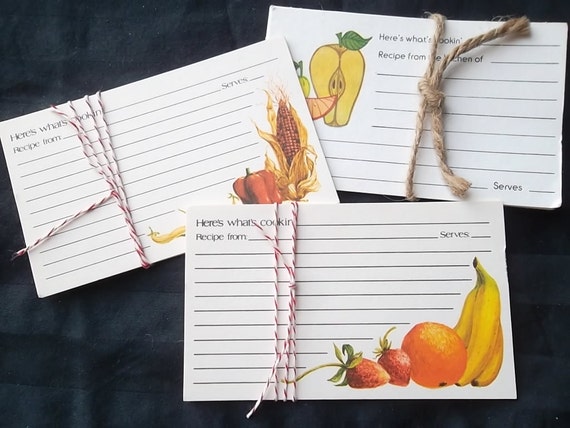 Here's what's cookin'
Recipe from the kitchen of
Serves
Here's what's cookin'
Serves:
Recipe from:
Here's what's cookin'
Recipe from:
Serves: